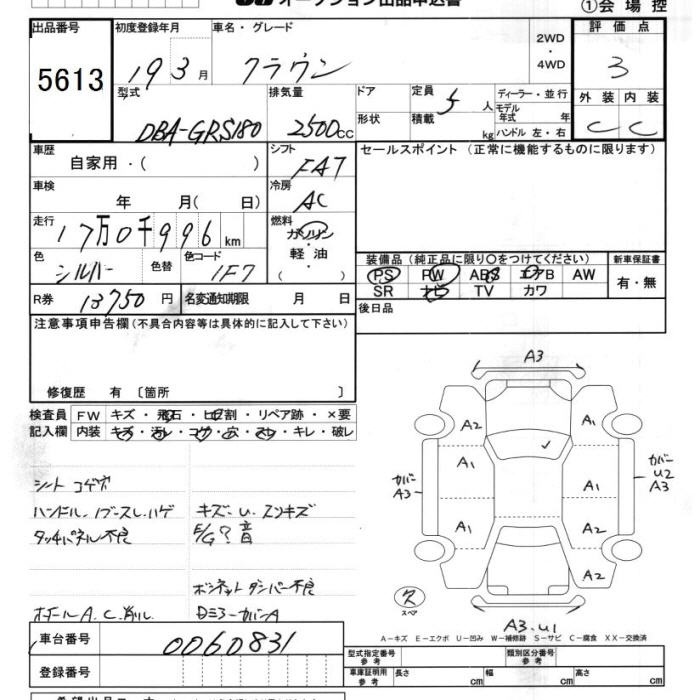 オークション出品申込書 ①会場控
出品番号 初度登録年月 車名・グレード 2WD 評価点
5613 19 3月 クラウン ・4WD 3
型式 排気量 ドア 定員 5人 ディーラー・並行 外装 内装
モデル年式 年
DBA-GRS180 2500cc 形状 積載 kg ハンドル 左・右 C C
車歴 シフト セールスポイント (正常に機能するものに限ります)
自家用・( ) FA7
車検 冷房
年 月( 日) AC
走行 燃料
17万0千996km ガソリン
・軽油 装備品(純正品に限り○をつけてください) 新車保証書
色 シルバー 色替 色コード 1F7 ・( ) PS PW ABS エアB AW 有・無
SR ナビ TV カワ
R券 13750円 名変通知期限 月 日 後日品
注意事項申告欄(不具合内容等は具体的に記入して下さい)
修復歴 有〔箇所 〕
検査員 FW キズ・飛石・ヒビ割・リペア跡・×要
記入欄 内装 キズ・汚レ・コゲ・穴・スレ・キレ・破レ
A3
A2 A1
A1 A1
カバー A3 カバー U2 A3
A1 A1
A2
シート コゲ穴
ハンドル、ノブ スレ、ハゲ キズ・U・エンキズ
タッチパネル不良 E/G?音
ボンネットダンパー不良
ホイールA.C.削レ Dミラーカバー A
ス スペア
A3・U1
A-キズ E-エクボ U-凹み W-補修跡 S-サビ C-腐食 XX-交換済
車台番号 0060831 型式指定番号 参考 類別区分番号 参考
登録番号 車庫証明用 参考 長さ cm 幅 cm 高さ cm